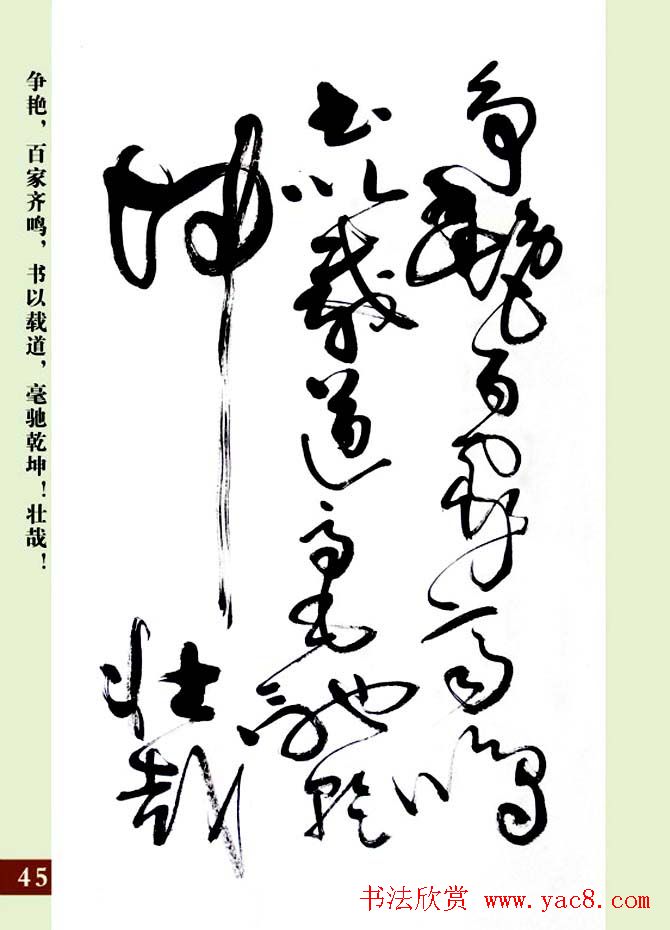 争艳百家齐鸣
书以载道毫驰乾
坤
壮哉
争艳，百家齐鸣，书以载道，毫驰乾坤！壮哉！
45
书法欣赏 www.yac8.com